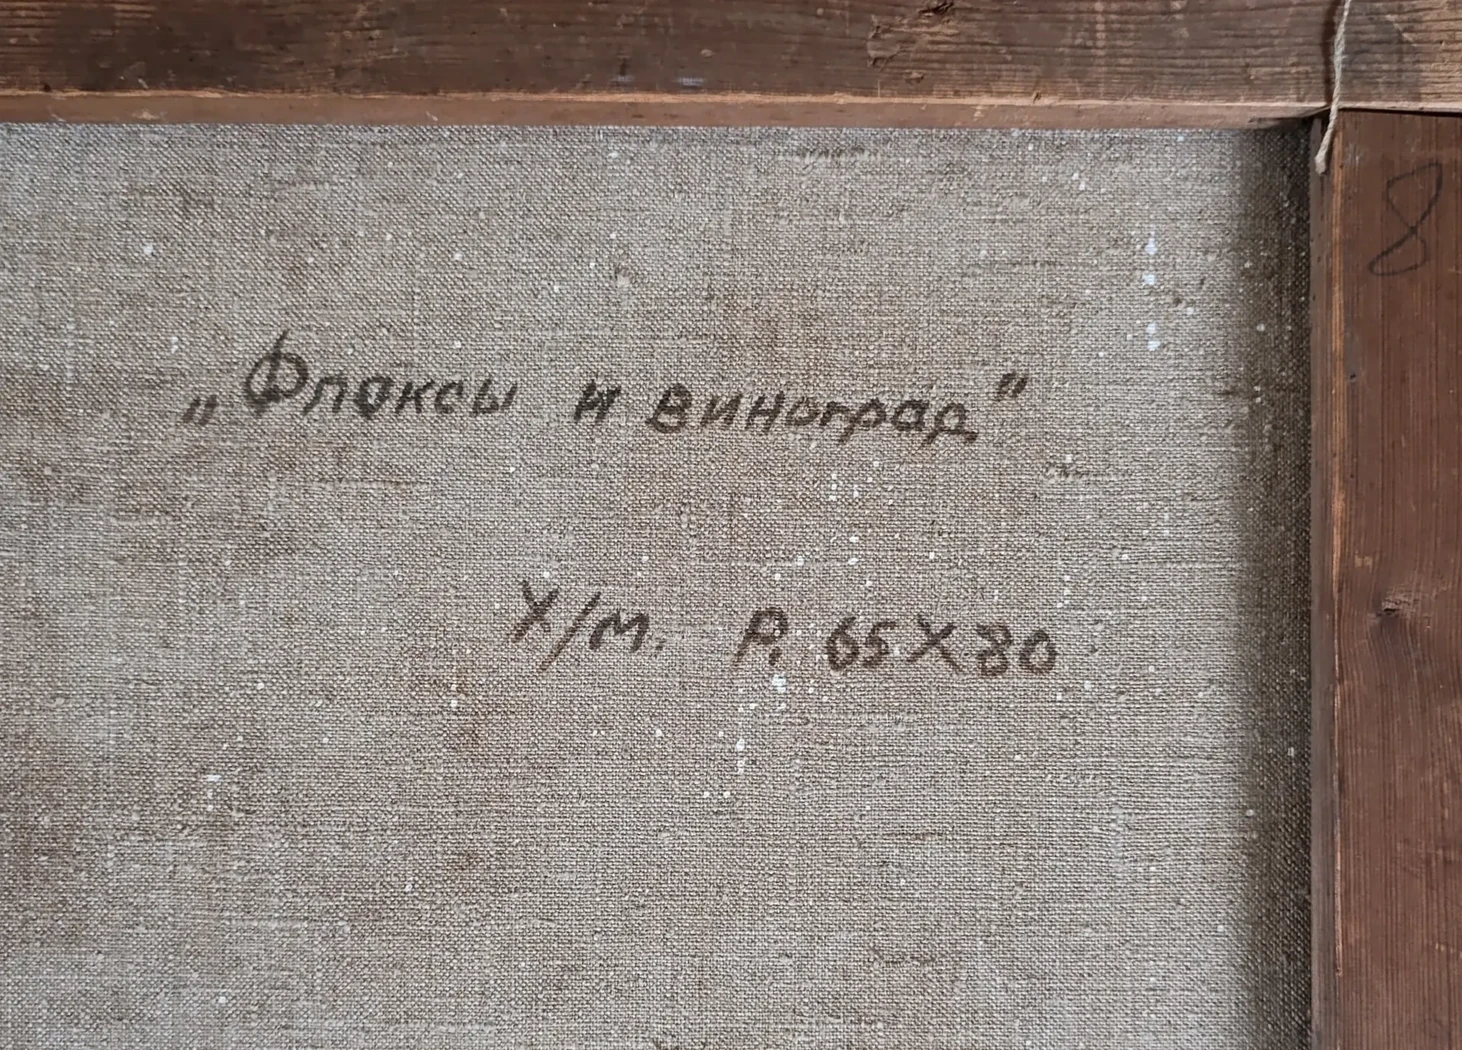 8
„Флоксы и виноград"
Х/м. Р. 65Х80